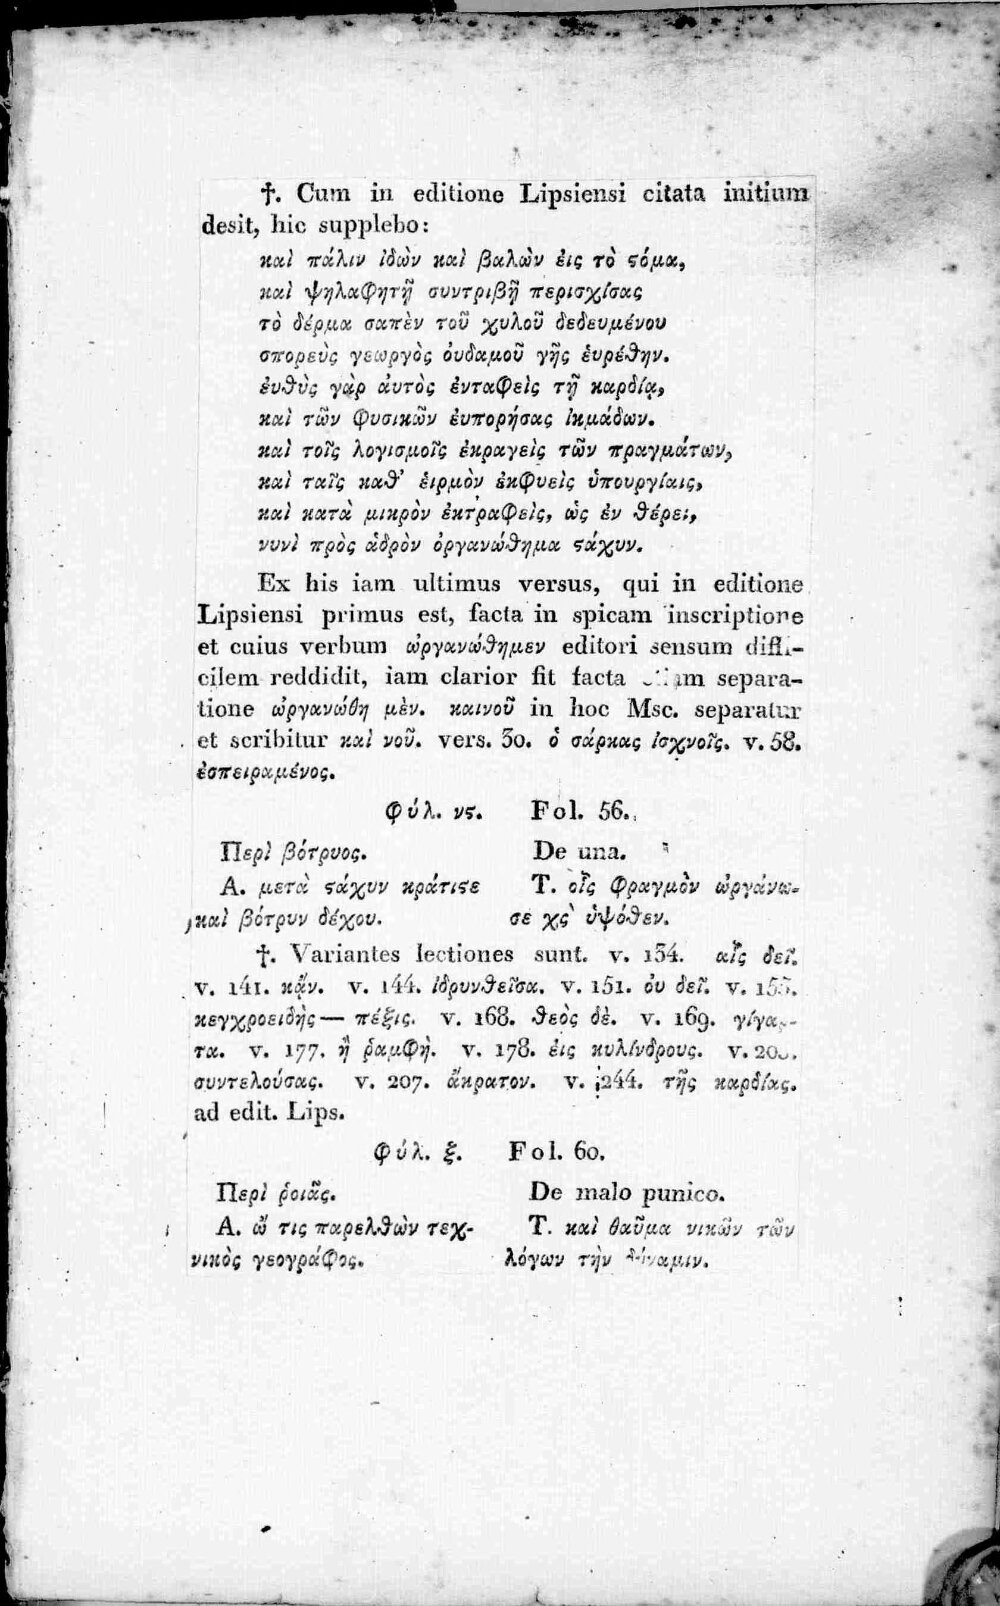 †. Cum in editione Lipsiensi citata initium
desit, hic supplebo:
καὶ πάλιν ἰδὼν καὶ βαλὼν ἐις τὸ ϛόμα,
καὶ ψηλαφητῇ συντριβῇ περισχίσας
τὸ δέρμα σαπὲν τοῦ χυλοῦ δεδευμένου
σπορεὺς γεωργὸς ὀυδαμοῦ γῆς ἑυρέθην.
ἐυθὺς γὰρ ἀυτὸς ἐνταφεὶς τῇ καρδίᾳ,
καὶ τῶν φυσικῶν ἐυπορήσας ἰκμάδων.
καὶ τοῖς λογισμοῖς ἐκραγεὶς τῶν πραγμάτων,
καὶ ταῖς καθ᾽ ἑιρμὸν ἐκφυεὶς ὑπουργίαις,
καὶ κατὰ μικρὸν ἐκτραφεὶς, ὡς ἐν θέρει,
νυνὶ πρὸς ἁδρὸν ὀργανώθημα ϛάχυν.
Ex his iam ultimus versus, qui in editione
Lipsiensi primus est, facta in spicam inscriptione
et cuius verbum ὠργανώθημεν editori sensum diffi-
cilem reddidit, iam clarior fit facta separa-
tione ὠργανώθη μὲν. καινοῦ in hoc Msc. separatur
et scribitur καὶ νοῦ. vers. 30. ὁ σάρκας ἰσχνοῖς. v. 58.
ἐσπειραμένος.
φύλ. νϛ. Fol. 56.
Περὶ βότρυος. De una.
Α. μετὰ ϛάχυν κράτιϛε Τ. οἷς φραγμὸν ὠργάνω-
καὶ βότρυν δέχου. σε χϛ̀ ὑψόθεν.
†. Variantes lectiones sunt. v. 134. αἷς δεῖ.
v. 141. κᾄν. v. 144. ἱδρυνθεῖσα. v. 151. ὀυ δεῖ. v.
κεγχροειδὴς — πέξις. v. 168. θεὸς δὲ. v. 169. γίγαρ-
τα. v. 177. ἢ ῥαμφὴ. v. 178. ἐις κυλίνδρους. v.
συντελούσας. v. 207. ἄκρατον. v. 244. τῆς καρδίας.
ad edit. Lips.
φύλ. ξ. Fol. 60.
Περὶ ῥοιᾶς. De malo punico.
Α. ὤ τις παρελθὼν τεχ- Τ. καὶ θαῦμα νικῶν τῶν
νικὸς γεογράφος. λόγων τὴν δύναμιν.